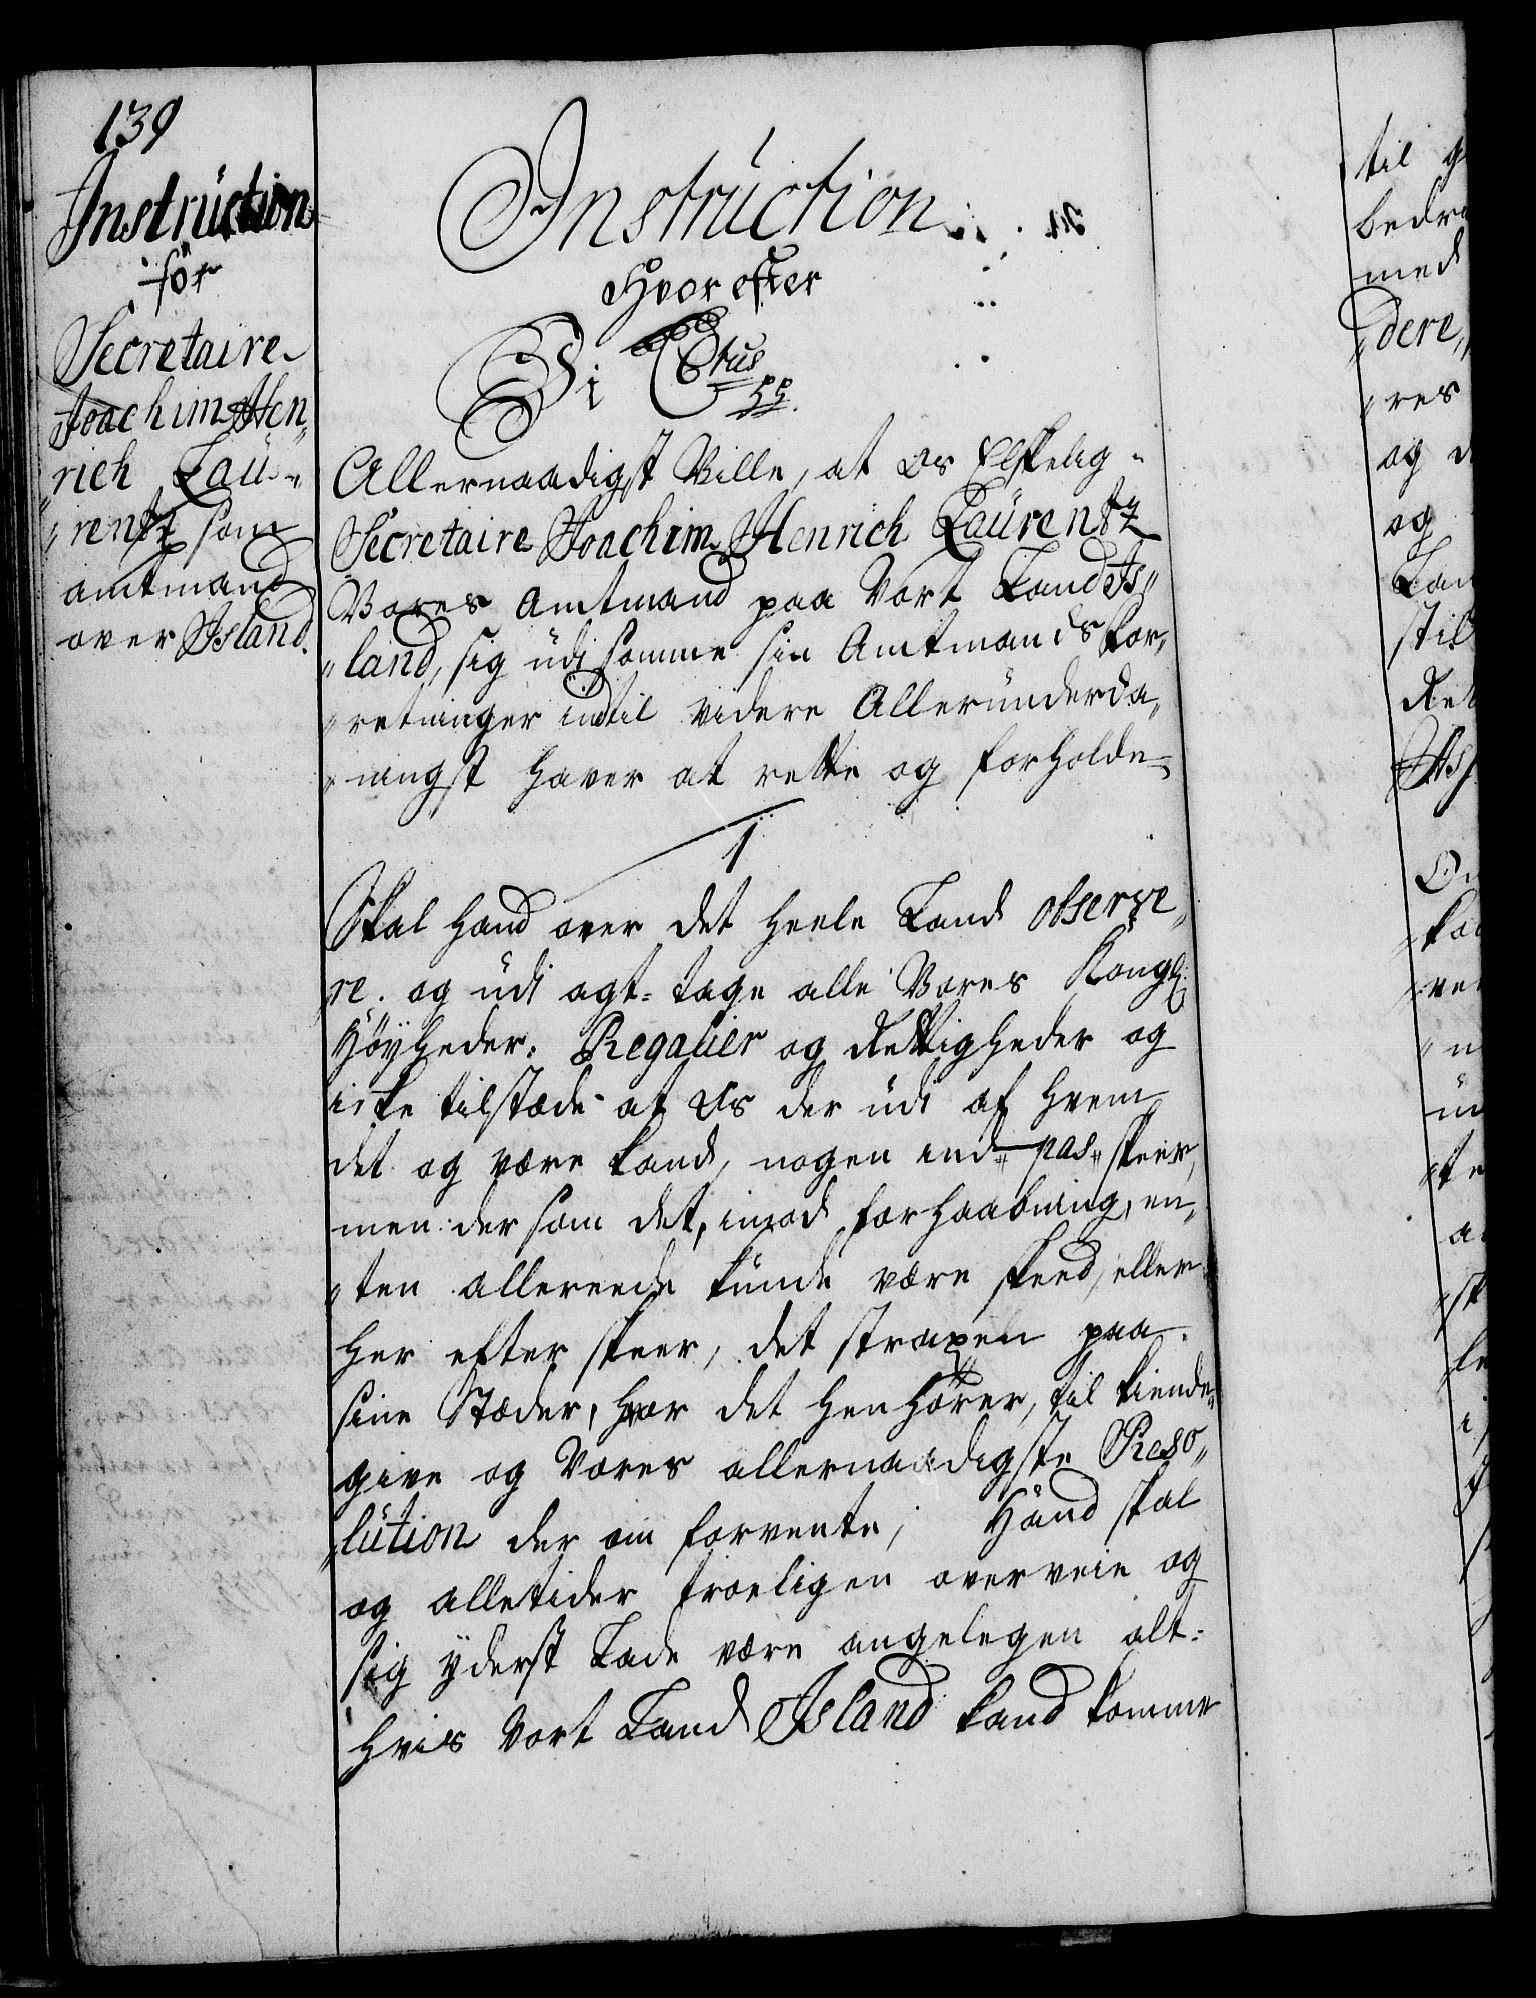 139
Instrüction
för
Secretaire
Joachim Hen„
„rich Laü„
„rentz som
amtmand
over Island.
Instrüction
Hvor efter
Vi Ctus
pp.
Allernaadigst Ville, at Os Elskelig
Secretaire Joachim Henrich Laürentz
Vores Amtmand paa Vort Land Is„
„land, sig üdj samme sin Amtmands For„
„retninger indtil videre Alleründerda„
„nigst haver at rette og forholde
1
Skal hand over det heele Land observe„
re. og üdi agt-tage alle Vores Kongl:
Höyheder: Regalier og Rettigheder og
icke tilstæde at Os der üdi af hvem
det og være kand, nogen ind-pas skeer,
men der som det, imod forhaabning, en„
„ten allereede künde være skeed, eller
her efter skeer, det straxen paa
sine Stæder, hvor det henhörer, til kiende
give og Vores allernaadigste Reso„
„lütion der om forvente, Hand skal
og alletider troeligen overveie og
sig yderst Lade være angelegen alt-
hvis Vort Land Island kand komme
til
med
dere,
res
og
og